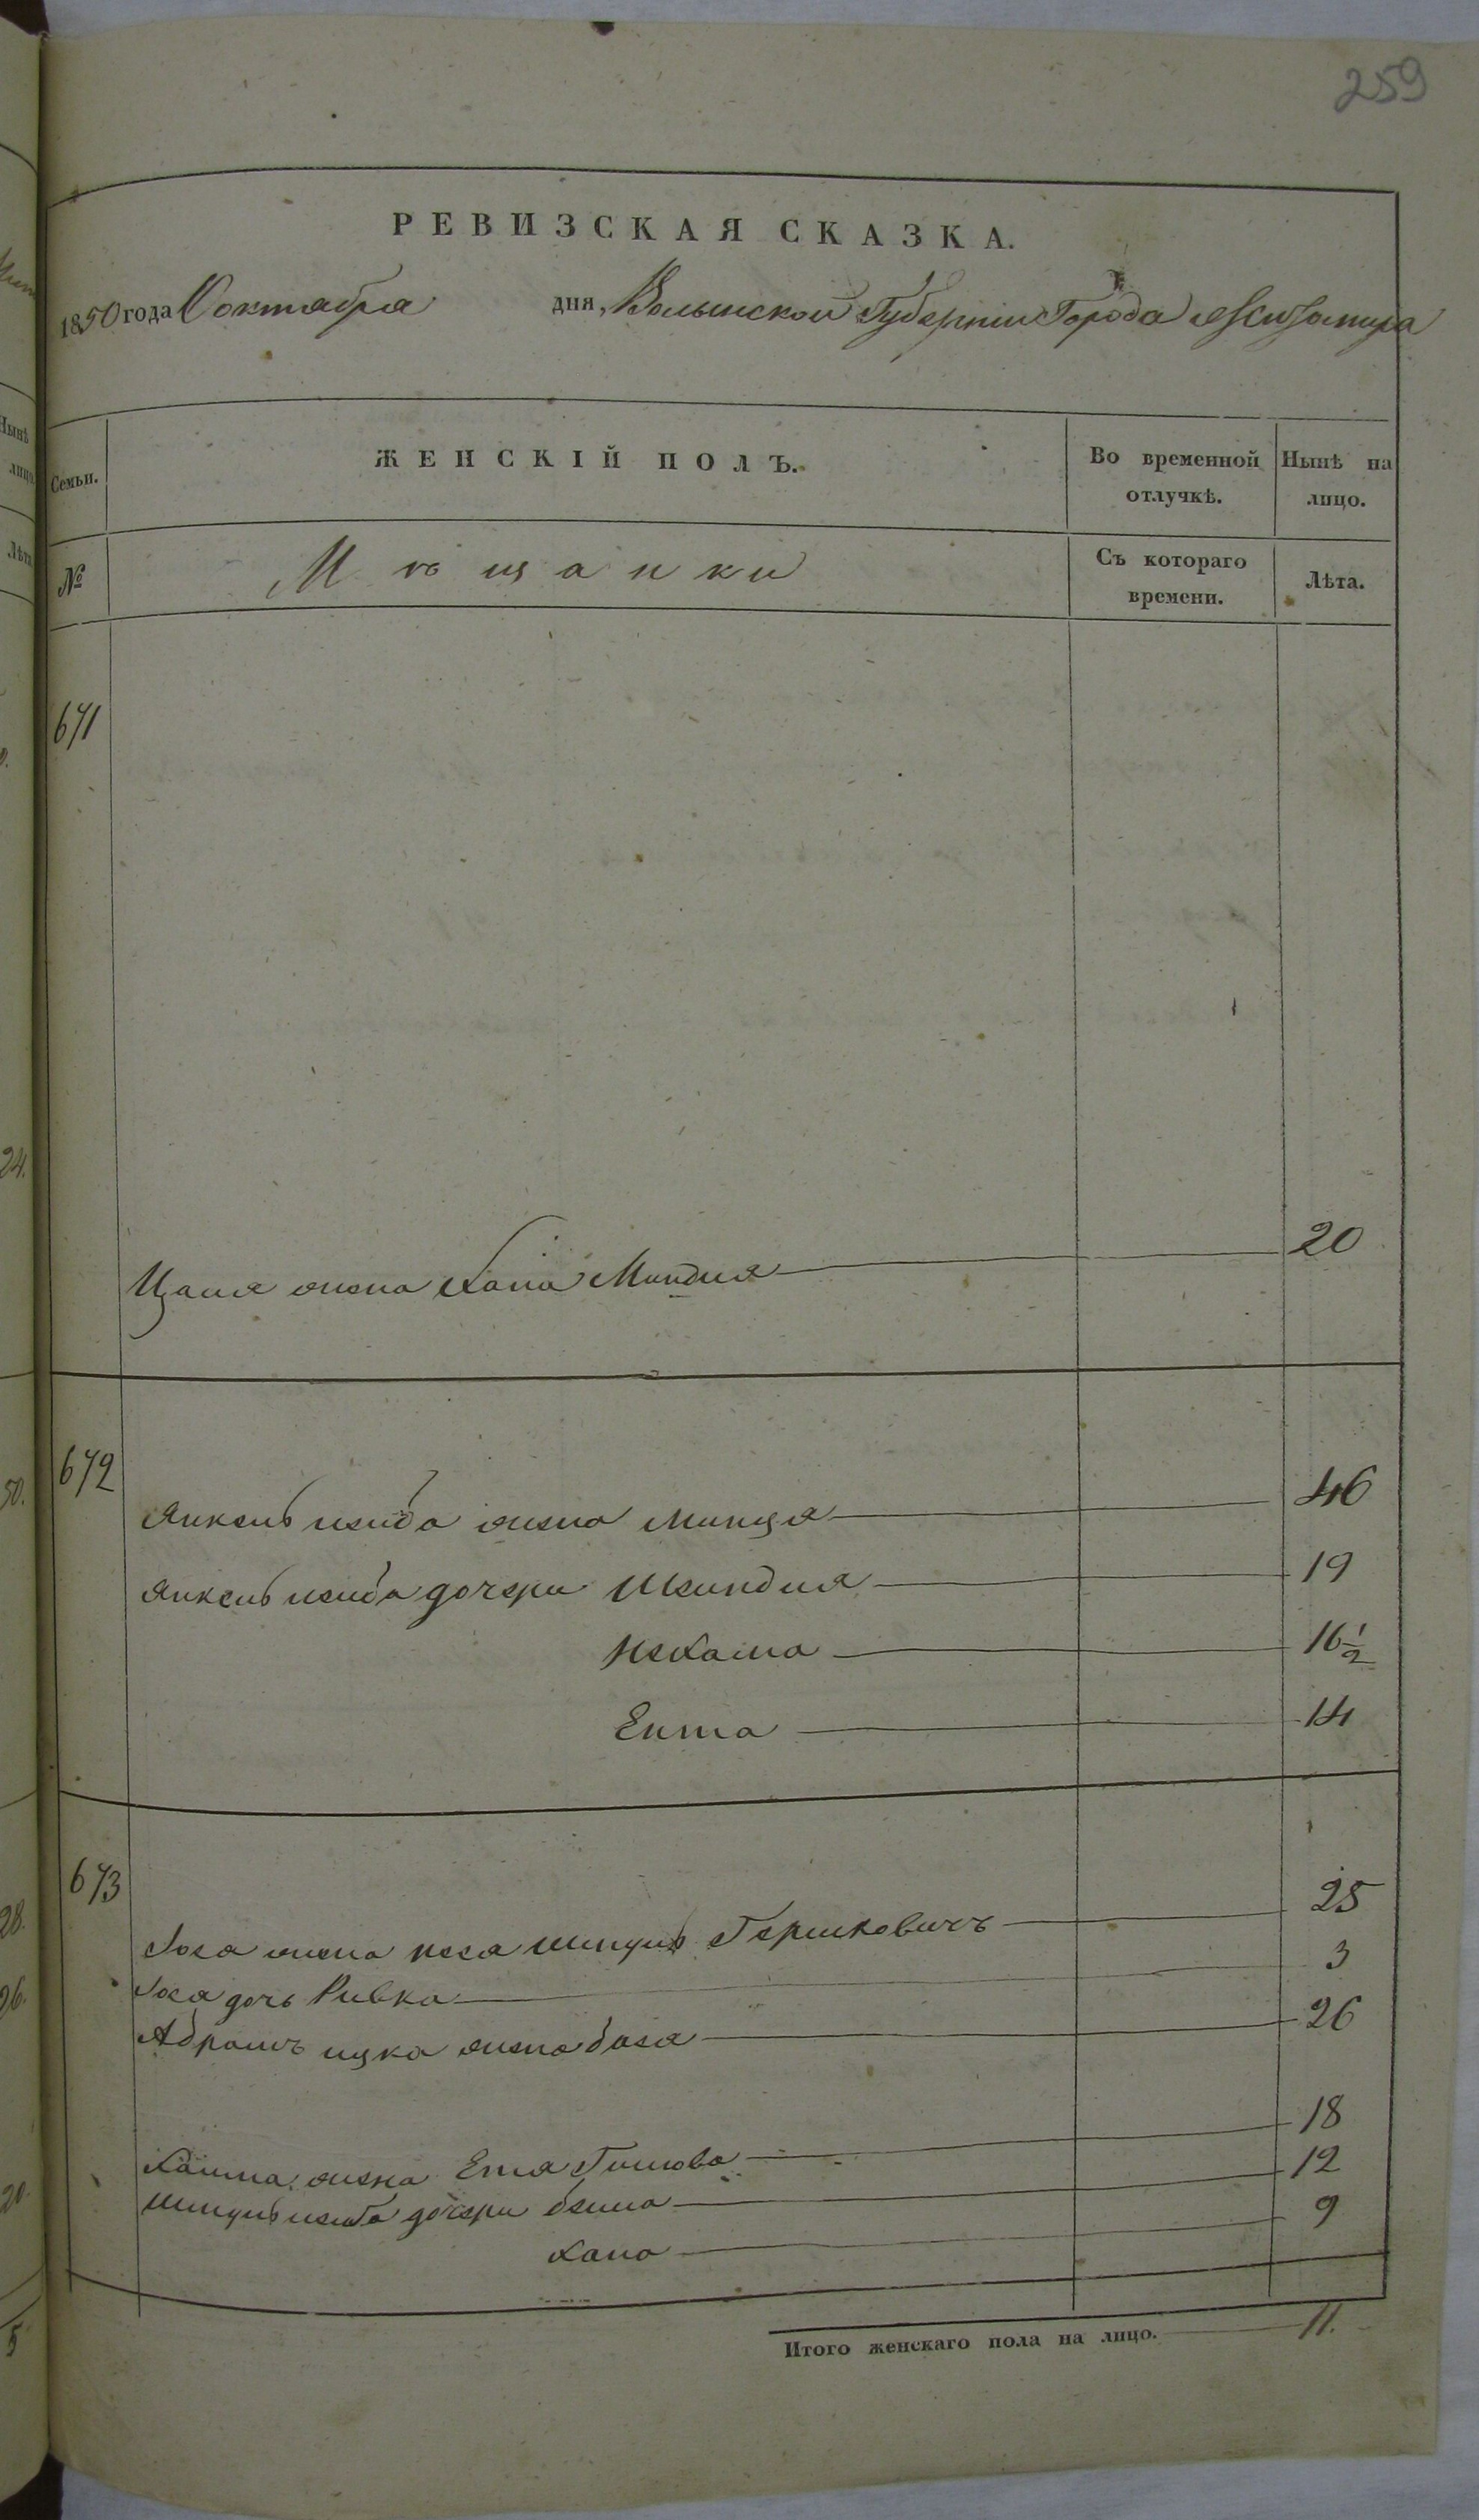 259
РЕВИЗСКАЯ СКАЗКА.
1850 года Октября дня, Волынской Губерніи Города Житомира
Семьи. ЖЕНСКІЙ ПОЛЪ. Во временной отлучкѣ. Нынѣ на лицо.
№ Мѣщанки Съ котораго времени. Лѣта.
671
жена Хана Миндля 20
672
Янкель жена Минця 46
Янкель дочери Шейндля 19
Нехама 16 1/2
Ента 14
673
жена Песя Шмуль Гершковичъ 25
дочь Ривка 3
Абрамъ Ицка жена Бася 26
жена Етя 18
дочери Бейла 12
Хана 9
Итого женскаго пола на лицо. 11.
24.
50.
28.
26.
20.
5